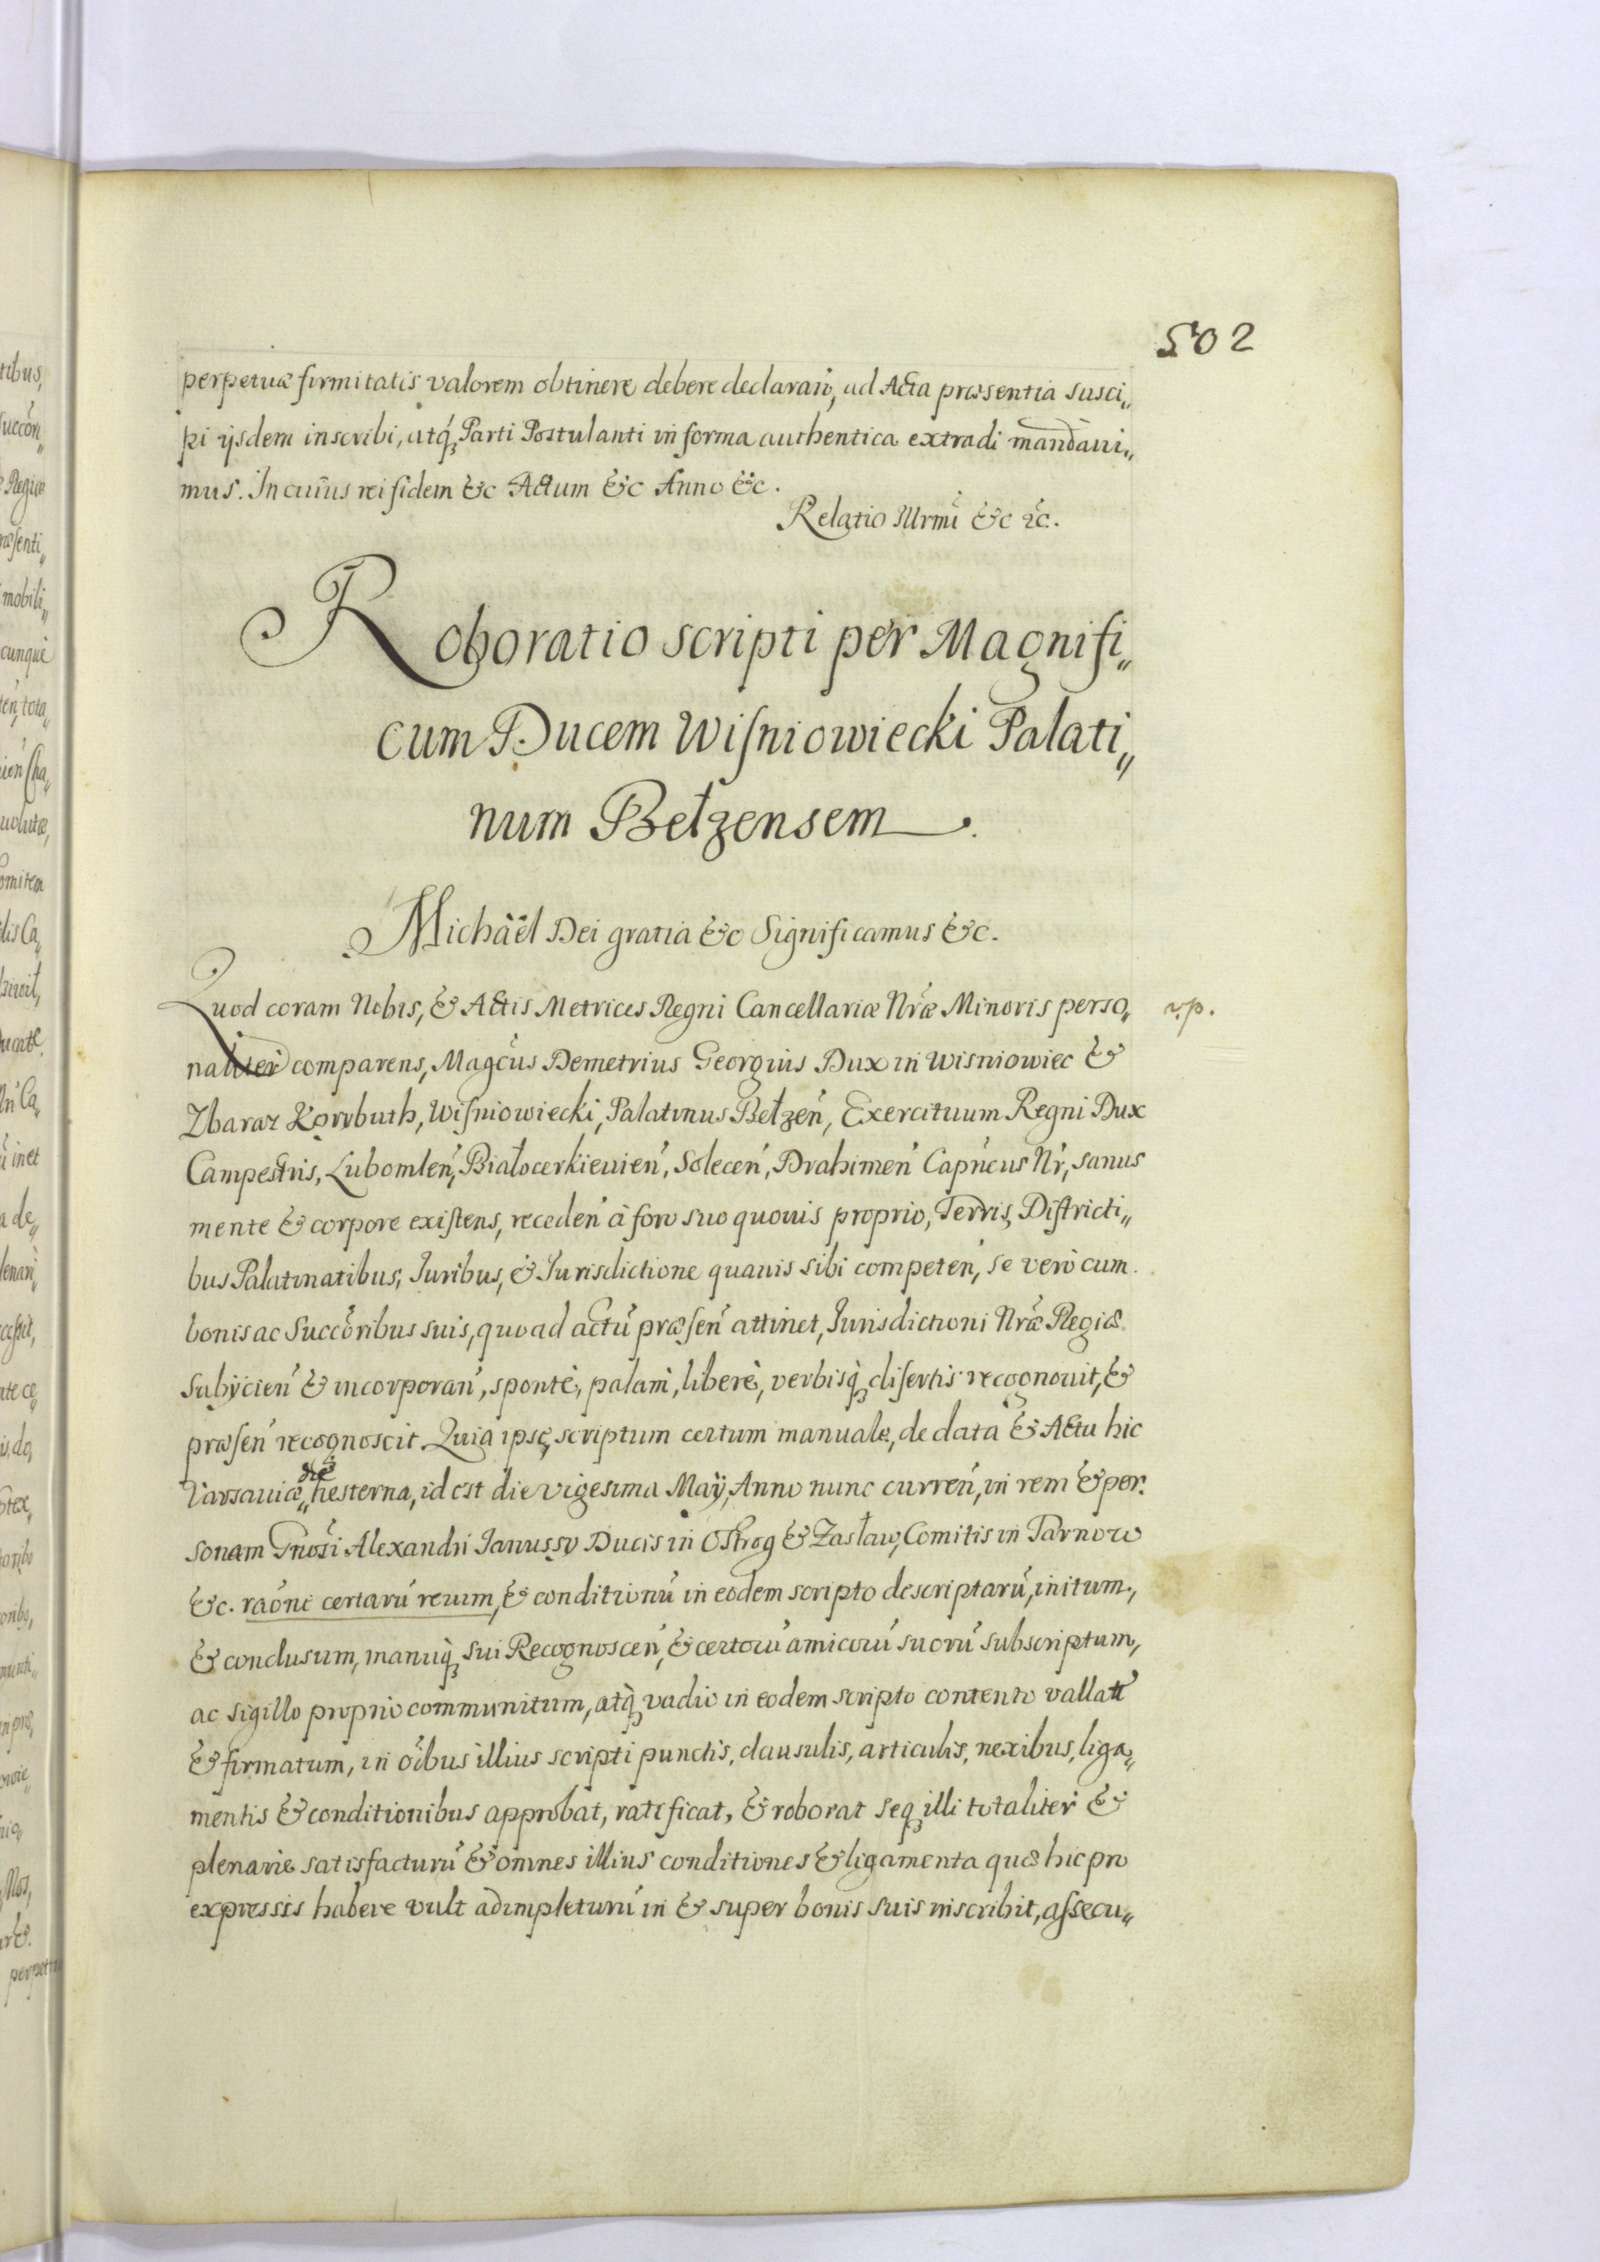 502
perpetuæ firmitatis valorem obtinere debere declarañ, ad Acta præsentia susci„
pi ijsdem inscribi, atq́ꝫ Parti Postulanti in forma authentica extradi mandaui„
mus. In cuius rei fidem &c Actum &c Anno &c.
Relatio Illrmi &c &c.
Roboratio scripti per Magnifi„
cum Ducem Wiſniowiecki Palati„
num Bełzensem.
Michaël Dei gratia &c Significamus &c.
Quod coram Nobis, & Actis Metrices Regni Cancellariæ Nræ Minoris perso„ v.p.
naliter comparens, Magcus Demetrius Georgius Dux in Wisniowiec &
Zbaraz Korybuth, Wiſniowiecki, Palatinus Bełzeń, Exercituum Regni Dux
Campestris, Lubomleń, Białocerkieuień, Soleceń, Drahimeń Capńcus Nr, sanus
mente & corpore exiſtens, recedeń à foro suo quouis proprio, Terris, Diſtricti„
bus Palatinatibus, Iuribus, & Iurisdictione quauis sibi competeń, se verò cum
bonis ac Succoribus suis, quoad actū præſeń attinet, Iurisdictioni Nræ Regiæ
subijcień & incorporań, spontè, palàm, liberè, verbisq́ꝫ diſertis recognouit, &
præſeń recognoscit. Quia ipse, scriptum certum manuale, de data & Actu hic
Varsauiæ„ die hesterna, id est die vigesima Maij, Anno nunc curreń, in rem & per„
sonam Gnosi Alexandri Janusso Ducis in Ostrog & Zasław, Comitis in Tarnow
&c. raone certarū rerum, & conditionū in eodem scripto descriptarū, initum,
& conclusum, manuq́ꝫ sui Recognosceń, & certorū amicorū suorū subscriptum,
ac sigillo proprio communitum, atq́ꝫ vadio in eodem scripto contento vallatū
& firmatum, in oibus illius scripti punctis, clausulis, articulis, nexibus, liga„
mentis & conditionibus approbat, ratificat, & roborat seqꝫ illi totaliter &
plenarie satisfacturū & omnes illius conditiones & ligamenta quæ hic pro
expressis habere vult adimpleturū in & super bonis suis inscribit, aſsecu„